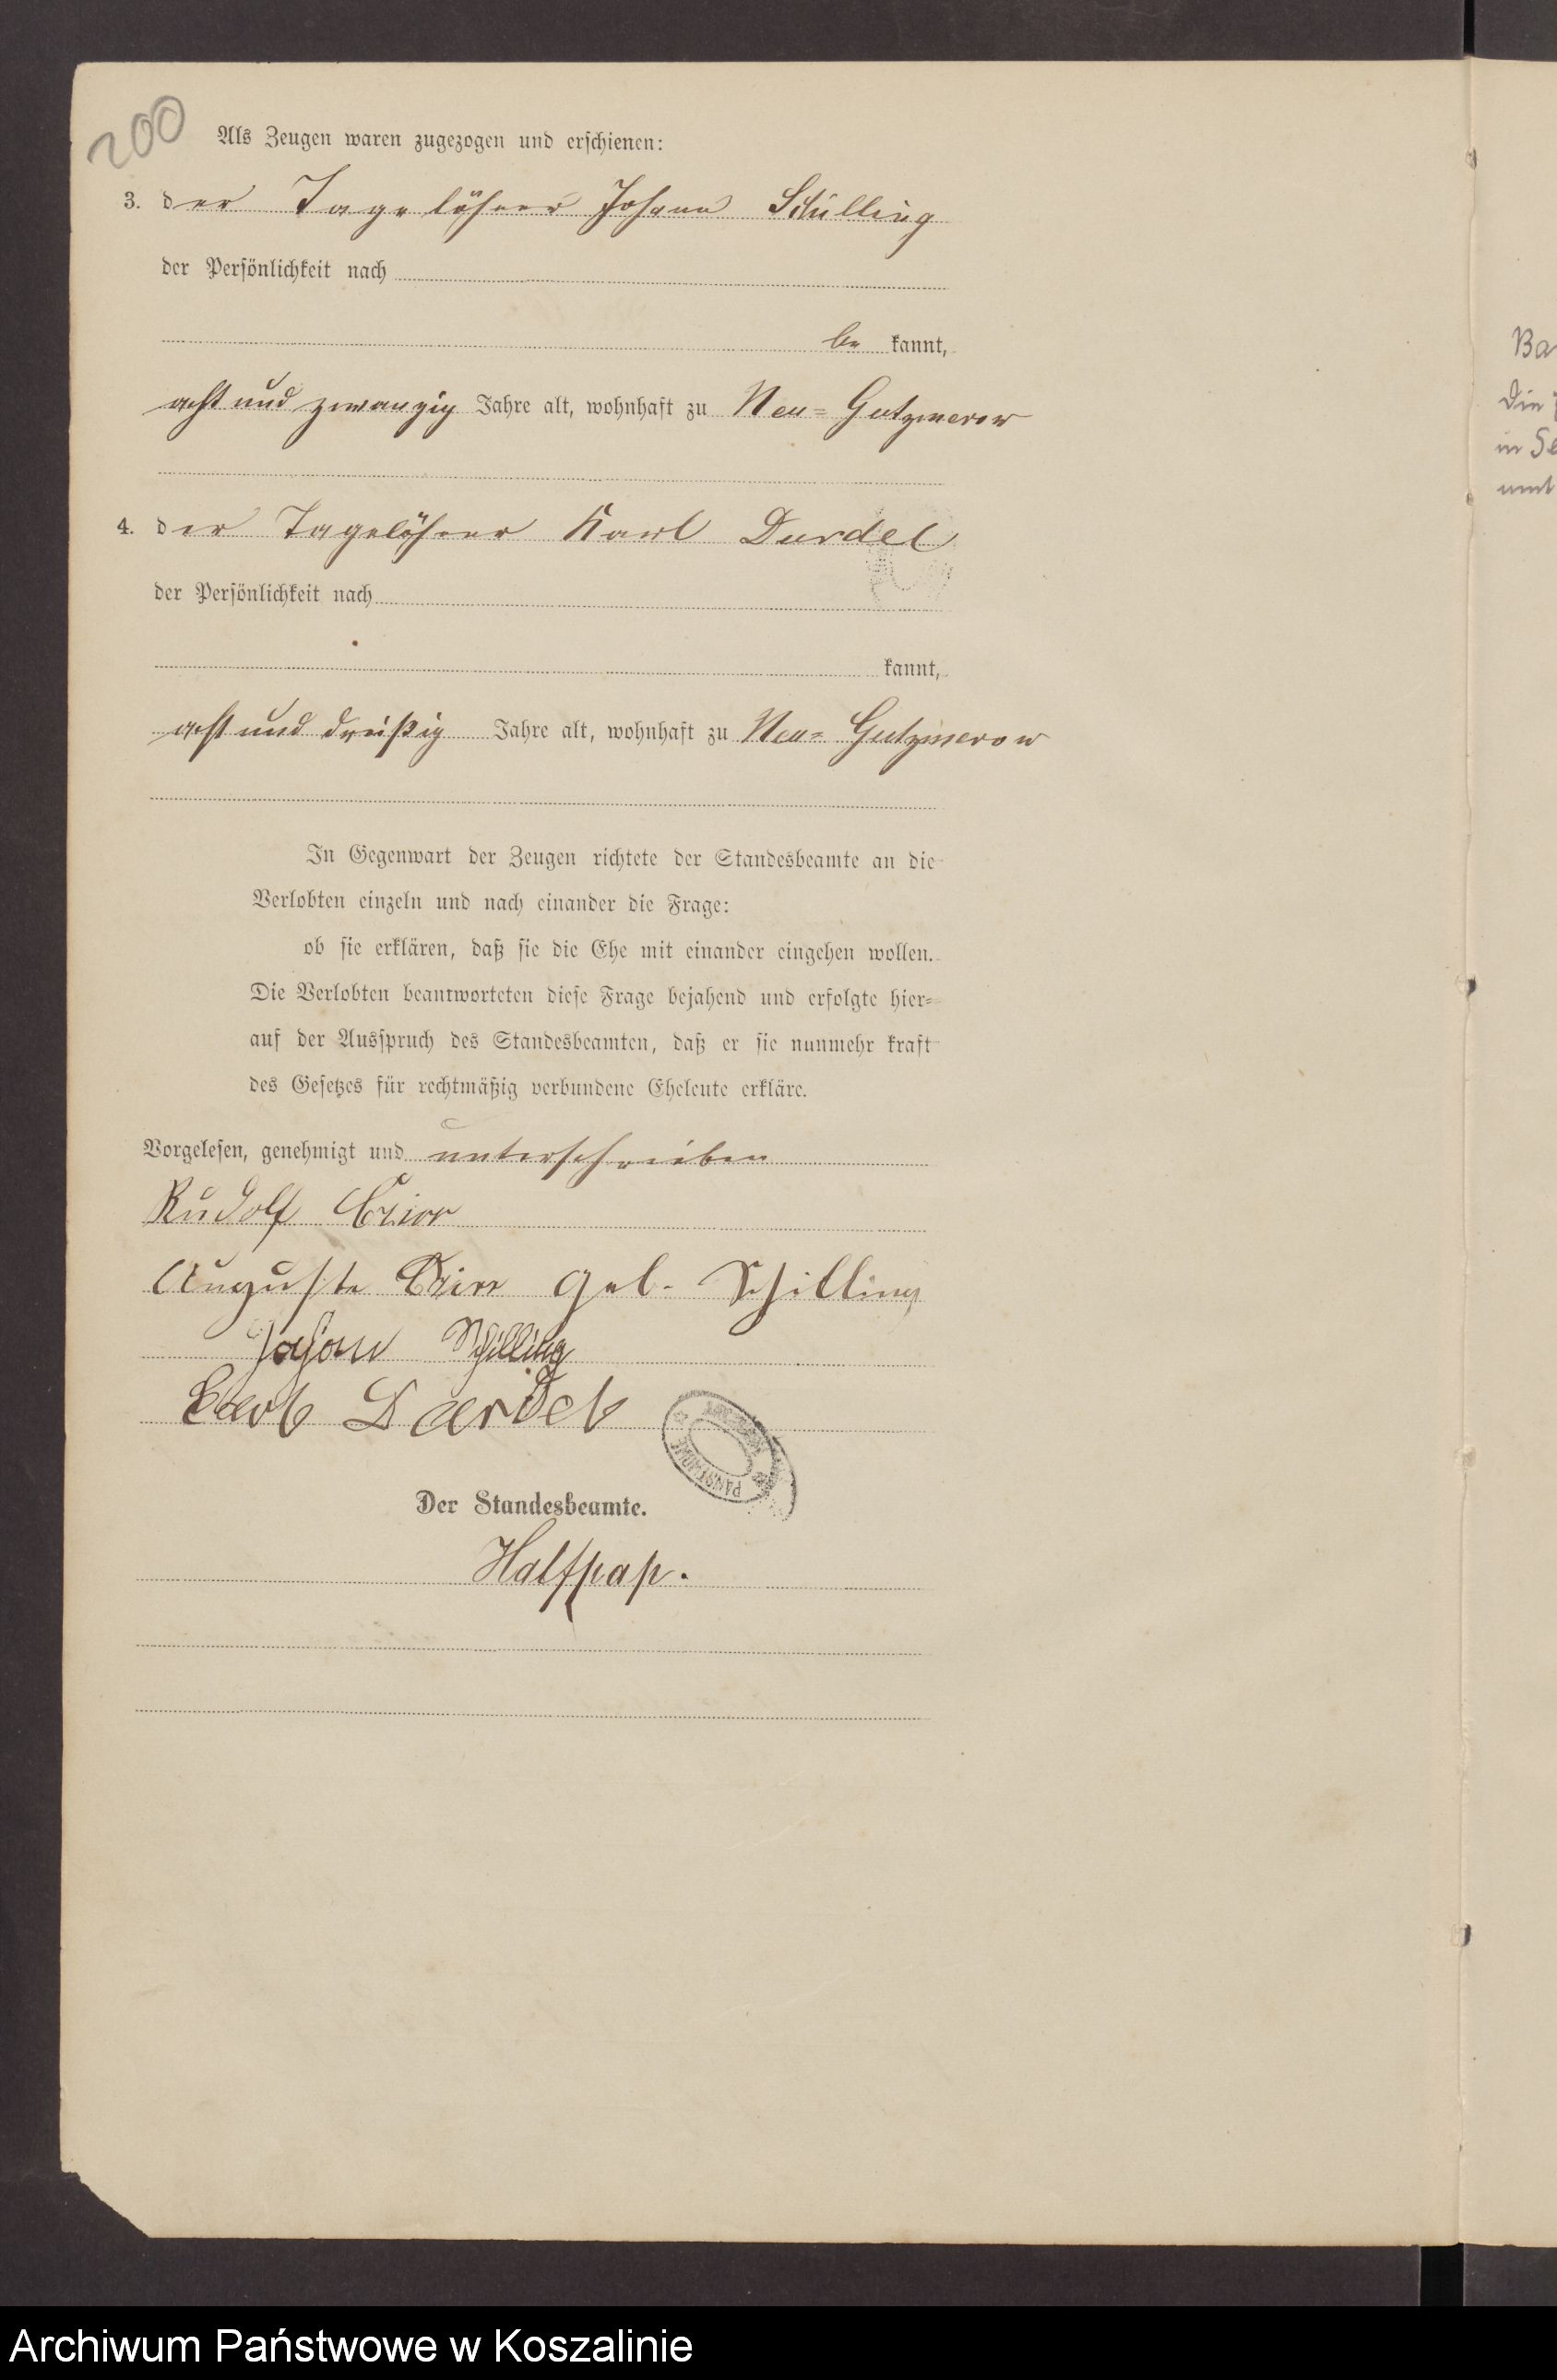 200
Als Zeugen waren zugezogen und erschienen:
3. der Tagelöhner Johann Schilling
der Persönlichkeit nach
be kannt,
acht und zwanzig Jahre alt, wohnhaft zu Neu- Gutzmerow
4. der Tagelöhner Karl Durdel
der Persönlichkeit nach
kannt,
acht und dreißig Jahre alt, wohnhaft zu Neu- Gutzmerow
In Gegenwart der Zeugen richtete der Standesbeamte an die
Verlobten einzeln und nach einander die Frage:
ob sie erklären, daß sie die Ehe mit einander eingehen wollen.
Die Verlobten beantworteten diese Frage bejahend und erfolgte hier-
auf der Ausspruch des Standesbeamten, daß er sie nunmehr kraft
des Gesetzes für rechtmäßig verbundene Eheleute erkläre.
Vorgelesen, genehmigt und unterschrieben
Rudolf
Auguste geb. Schilling
Johann Schilling
Carl Durdel
Der Standesbeamte.
Halfpap.
Archiwum Państwowe w Koszalinie